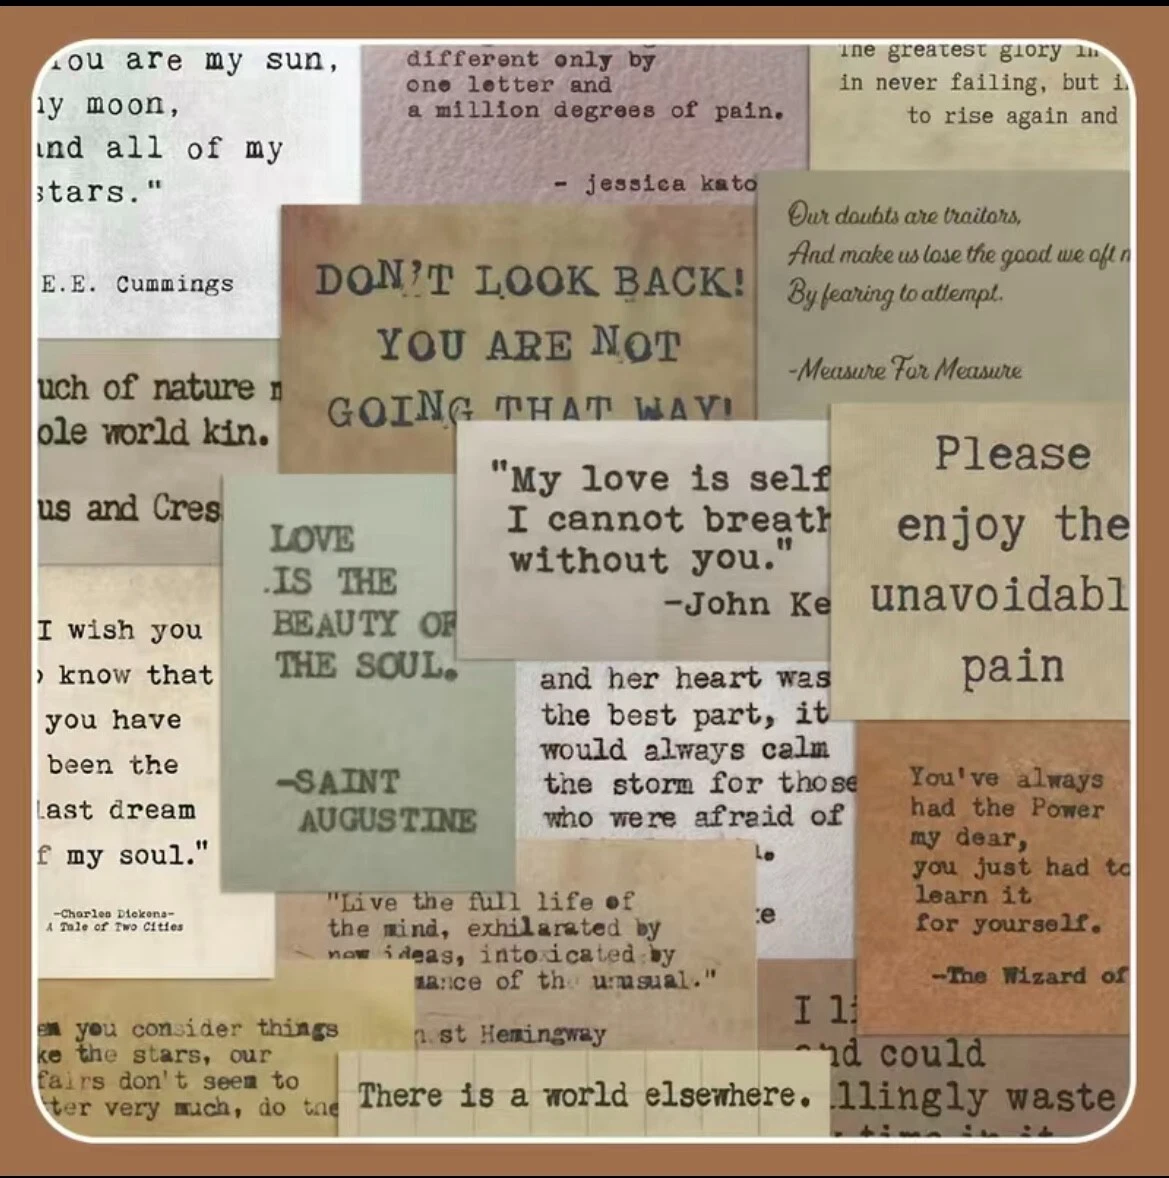 ou are my sun,
y moon,
nd all of my
stars."
E.E. Cummings
different only by
one letter and
a million degrees of pain.
- jessica kato
The greatest glory in
in never failing, but i
to rise again and
DON'T LOOK BACK!
YOU ARE NOT
GOING THAT WAY!
Our doubts are traitors,
And make us lose the good we oft
By fearing to attempt.
-Measure For Measure
uch of nature
ole world kin.
us and Cres
"My love is self
I cannot breath
without you."
-John Ke
Please
enjoy the
unavoidabl
pain
LOVE
.IS THE
BEAUTY OF
THE SOUL.
-SAINT
AUGUSTINE
I wish you
know that
you have
been the
last dream
f my soul."
-Charles Dickens-
A Tale of Two Cities
and her heart was
the best part, it
would always calm
the storm for those
who were afraid of
You've always
had the Power
my dear,
you just had to
learn it
for yourself.
-The Wizard of
"Live the full life of
the mind, exhilarated by
new ideas, intoxicated by
mance of the unusual."
st Hemingway
en you consider things
ke the stars, our
fairs don't seem to
ter very much, do the
There is a world elsewhere.
I li
and could
llingly waste
time in it